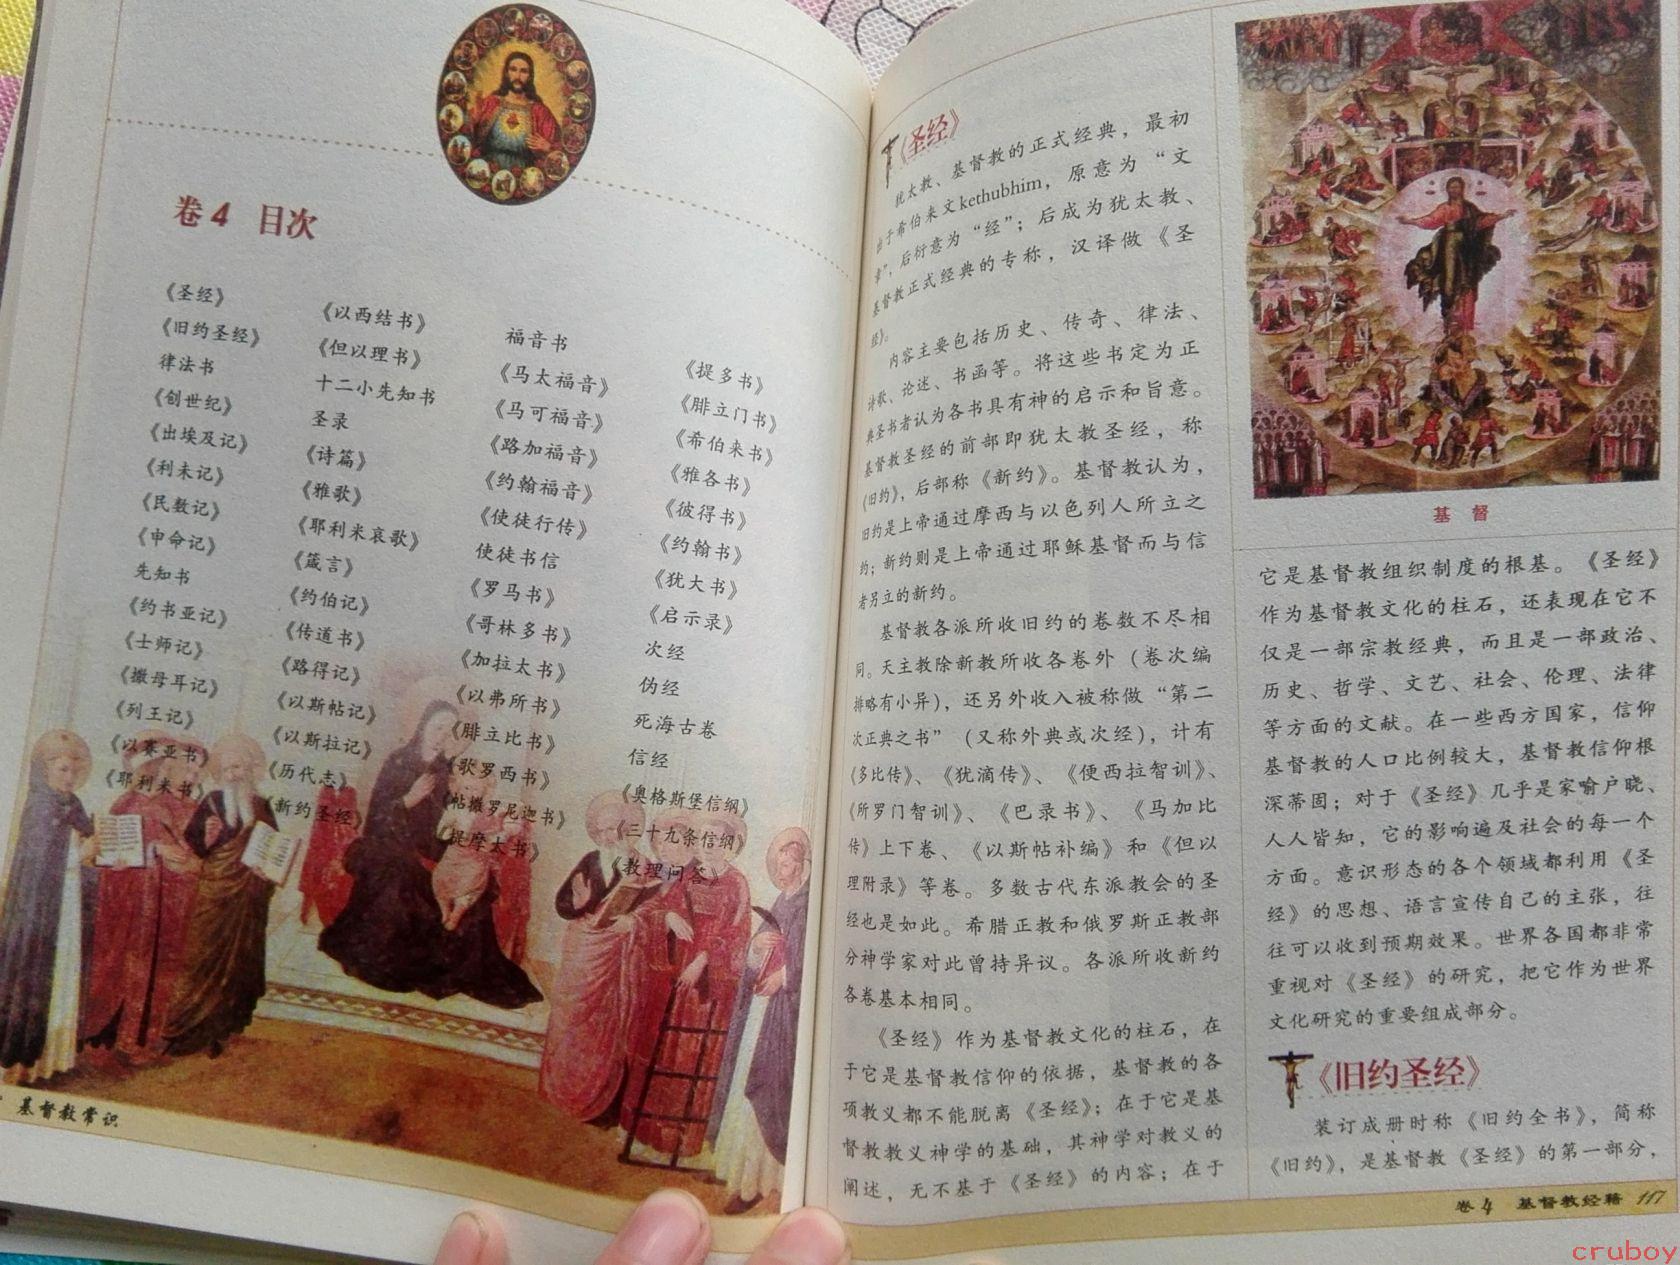 卷4 目次
《圣经》
《旧约圣经》
律法书
《创世纪》
《出埃及记》
《利未记》
《民数记》
《申命记》
先知书
《约书亚记》
《士师记》
《撒母耳记》
《列王记》
《以赛亚书》
《耶利米书》
《以西结书》
《但以理书》
十二小先知书
圣录
《诗篇》
《雅歌》
《耶利米哀歌》
《箴言》
《约伯记》
《传道书》
《路得记》
《以斯帖记》
《以斯拉记》
《历代志》
《新约圣经》
福音书
《马太福音》
《马可福音》
《路加福音》
《约翰福音》
《使徒行传》
使徒书信
《罗马书》
《哥林多书》
《加拉太书》
《以弗所书》
《腓立比书》
《歌罗西书》
《帖撒罗尼迦书》
《提摩太书》
《提多书》
《腓立门书》
《希伯来书》
《雅各书》
《彼得书》
《约翰书》
《犹大书》
《启示录》
次经
伪经
死海古卷
信经
《奥格斯堡信纲》
《三十九条信纲》
《教理问答》
基督教常识
《圣经》
犹太教、基督教的正式经典，最初
出于希伯来文kethubhim，原意为“文
章”，后衍意为“经”；后成为犹太教、
基督教正式经典的专称，汉译做《圣
经》。
内容主要包括历史、传奇、律法、
诗歌、论述、书函等。将这些书定为正
典圣书者认为各书具有神的启示和旨意。
基督教圣经的前部即犹太教圣经，称
《旧约》，后部称《新约》。基督教认为，
旧约是上帝通过摩西与以色列人所立之
约；新约则是上帝通过耶稣基督而与信
者另立的新约。
基督教各派所收旧约的卷数不尽相
同。天主教除新教所收各卷外（卷次编
排略有小异），还另外收入被称做“第二
次正典之书”（又称外典或次经），计有
《多比传》、《犹滴传》、《便西拉智训》、
《所罗门智训》、《巴录书》、《马加比
传》上下卷、《以斯帖补编》和《但以
理附录》等卷。多数古代东派教会的圣
经也是如此。希腊正教和俄罗斯正教部
分神学家对此曾持异议。各派所收新约
各卷基本相同。
《圣经》作为基督教文化的柱石，在
于它是基督教信仰的依据，基督教的各
项教义都不能脱离《圣经》；在于它是基
督教教义神学的基础，其神学对教义的
阐述，无不基于《圣经》的内容；在于
基督
它是基督教组织制度的根基。《圣经》
作为基督教文化的柱石，还表现在它不
仅是一部宗教经典，而且是一部政治、
历史、哲学、文艺、社会、伦理、法律
等方面的文献。在一些西方国家，信仰
基督教的人口比例较大，基督教信仰根
深蒂固；对于《圣经》几乎是家喻户晓、
人人皆知，它的影响遍及社会的每一个
方面。意识形态的各个领域都利用《圣
经》的思想、语言宣传自己的主张，往
往可以收到预期效果。世界各国都非常
重视对《圣经》的研究，把它作为世界
文化研究的重要组成部分。
《旧约圣经》
装订成册时称《旧约全书》，简称
《旧约》，是基督教《圣经》的第一部分，
卷4 基督教经籍 117
cruboy